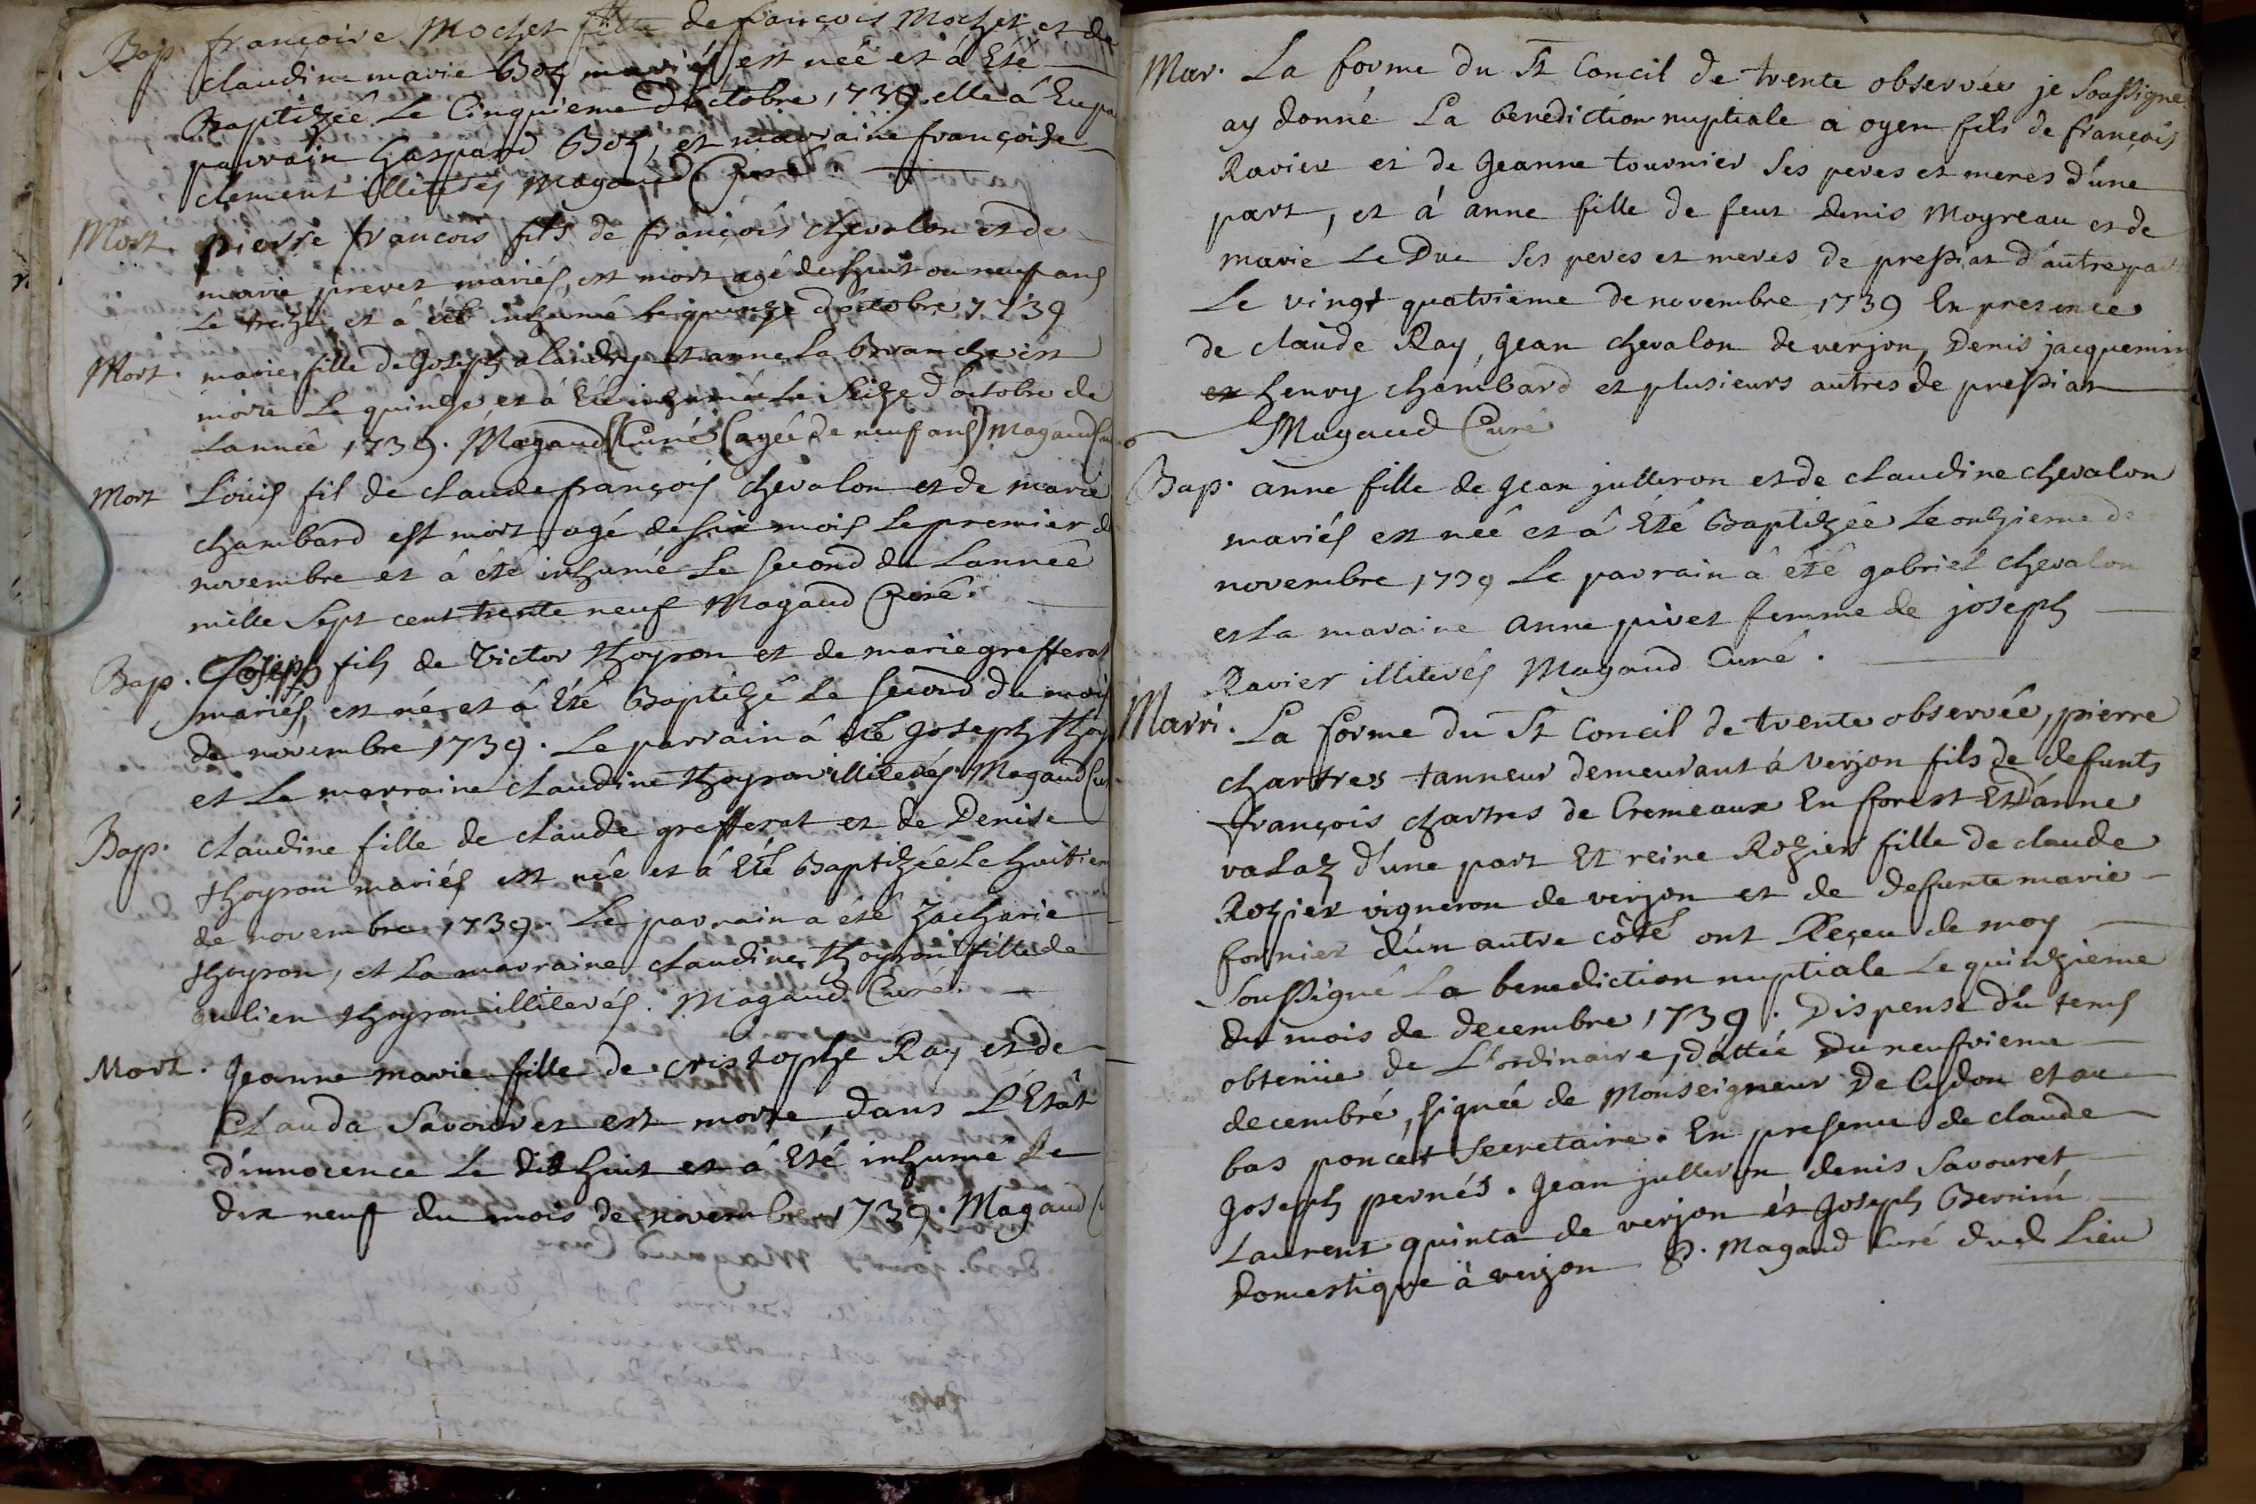 Bap. françoise Mochet fille de françois Mochet et de
claudine marie Boz mariés, est née et á Eté
Baptizée Le Cinquieme d'octobre 1739. elle á Eu pr
parrain Gaspard Boz, et marraine françoise
clement illiterés Magaud Curé.
Mort. pierre françois fils de françois chevalon et de
marie prevet mariés, est mort agé de huit ou neuf ans
Le treize, et á été inhumé Le quinze d'octobre 1739
Mort. marie fille de Joseph alandry et anne La Branche est
morte Le quinze et á Eté inhumée Le Seize d'octobre de
Lannée 1739. Magaud Curé (agée de neuf ans) Magaud
Mort Loüis fil de claude françois chevalon et de marie
chambard est mort agé de six mois Le premier de
novembre et á été inhumé Le second de Lannée
mille Sept cent trente neuf Magaud Curé.
Bap. Joseph fils de Victor thoyron et de marie grefferat
mariés, est né et á Eté Baptizé Le second du mois
de novembre 1739. Le parrain á été Joseph thoy
et La marraine claudine thoyron illiterés Magaud Cu
Bap. claudine fille de claude grefferat et de Denise
thoyron mariés est née et á Eté Baptizée Le huitiem
de novembre 1739. Le parrain a été Zacharie
thoyron, et La marraine claudine thoyron fille de
Julien thoyron illiterés. Magaud Curé.
Mort. Jeanne marie fille de cristophe Ray et de
Clauda Savouret est morte dans L'Etat
d'innocence Le dix huit et á Eté inhumé Le
dix neuf du mois de novembre 1739. Magaud C
Mar. La forme du St Concil de trente observée je Soussigné
ay donné La benediction nuptiale a oyen fils de françois
Ravier et de Jeanne tournier Ses peres et meres d'une
part, et á anne fille de feut Denis Moyreau et de
marie Le Duc Ses peres et meres de pressiat d'autre part
Le vingt quatrieme de novembre 1739 En presence
de claude Ray, Jean chevalon de verjon, Denis jacquemin
et henry chambard et plusieurs autres de pressiat
Magaud Curé
Bap. anne fille de Jean julleron et de claudine chevalon
mariés est née et á Eté Baptizée Le onzieme de
novembre 1739 Le parrain á été gabriel chevalon
et La maraine anne pivet femme de joseph
Ravier illiterés Magaud Curé.
Marri. La forme du St Concil de trente observée, pierre
chartres tanneur demeurant á verjon fils de defunts
françois chartres de Cremeaux En fforest Et d'anne
valaz d'une part Et reine Rozier fille de claude
Rozier vigneron de verjon et de defunte marie
fornier d'un autre côté ont Reçeu de moy
Soussigné La benediction nuptiale Le quinzieme
du mois de decembre 1739. Dispense du tems
obtenüe de L'ordinaire, dattée Du neuffvieme
decembré, signée de Monseigneur De Cydon et au
bas poncét Secretaire. En presence de claude
Joseph pernés. Jean julleron denis Savouret
Laurent quinta de verjon ét Joseph Bernin
Domestique á verjon P. Magaud Curé dud. Lieu